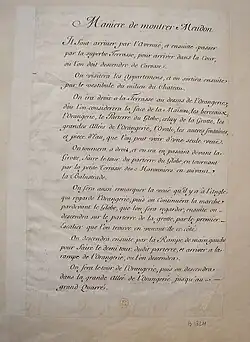 Maniere de montrer Meudon
Il faut arriver par l'Avenue, et ensuite passer
par la superbe Terrasse, pour arriver dans la Cour,
ou l'on doit descendre de Carosse.
On visitera les Appartemens, et on sortira ensuite
par le vestibule du milieu du Chateau.
On ira droit a la Terrasse au dessus de l'Orangerie,
d'ou l'on considerera la face de la Maison, les berceaux,
l'Orangerie, le Parterre du Globe, celuy de la Grotte, les
grandes Allées de l'Orangerie, l'Ovale, les autres fontaines,
et pieces d'Eau, que l'on peut voir d'une seule veüe.
On tournera a droit, et on ira en passant devant la
Grotte, faire le tour du parterre du Globe en tournant
par la petite Terrasse des Maronniers en suivant
la Balustrade.
On fera aussi remarquer la veüe qu'il y a à l'Angle
qui regarde l'Orangerie, puis on continuera la marche
pardevant le Globe, que l'on fera regarder, ensuite on
descendra sur le parterre de la grotte, par le premier
Escalier que l'on trouve en venant de ce coté.
On descendra ensuite par la Rampe de main gauche
pour faire le demi tour dudit parterre, et arriver a la
rampe de l'Orangerie, ou l'on descendra.
On fera le tour de l'Orangerie, puis on descendra
dans la grande Allée de l'Orangerie, jusqu'au
grand Quarré.